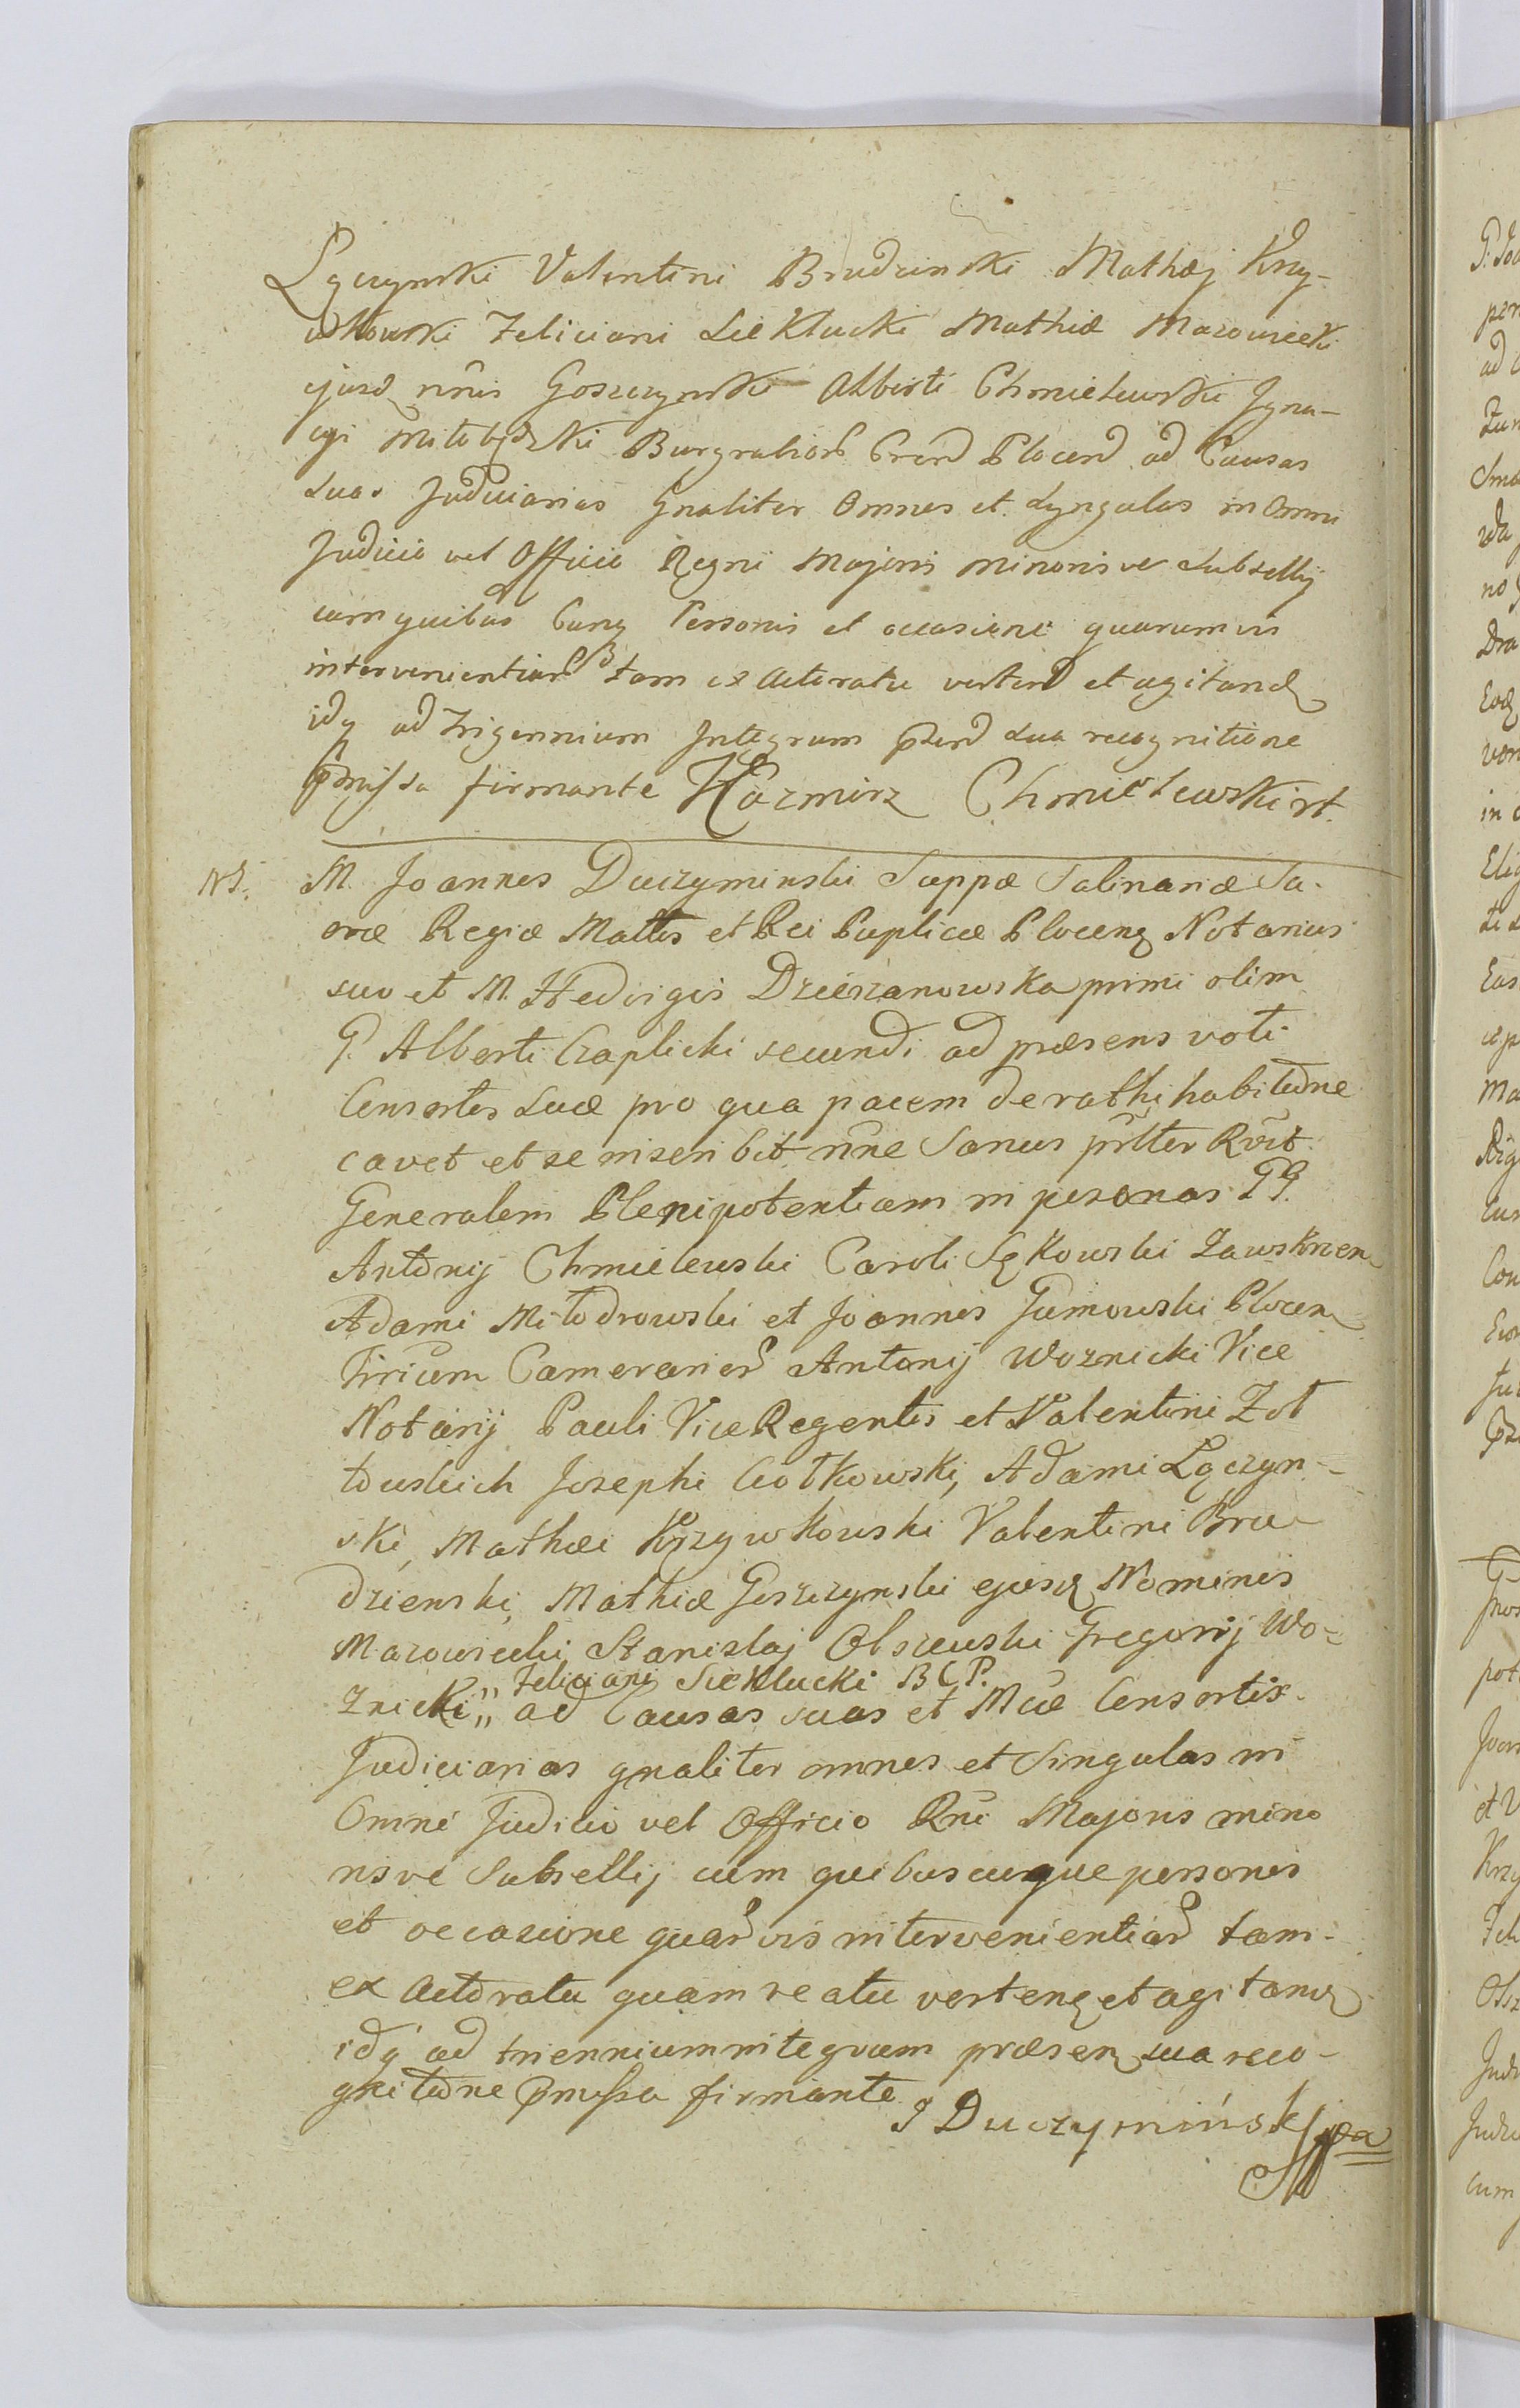 Lączynski Valentini Brudzinski Mathæj Krzy-
wkowski Feliciani Sieklucki Mathiæ Mazowiecki
ejusd nnis Goszczynski Alberti Chmielewski Igna-
cyi Burgrabior Cren Plocen ad Causas
suas Judiciarias Gnaliter Omnes et Syngulas in Omni
Judicio vel Officio Regni Majoris minorisve Subsellij
cum quibus Cunq Personis et occasione quarumvis
intervenientiar tam ex Actoratu verten et agitand
idq ad Trigennium Integrum sua recognitione
pmissa firmante Kazmirz Chmielewski
N 5. M. Joannes Duczyminski Suppæ Salinariæ Sa-
cræ Regiæ Mattis et Rei Puplicæ Plocens Notarius
suo et M. Hedvigis Dzierzanowska primi olim
G. Alberti Czaplicki secundi ad præsens voti
Consortis suæ pro qua pacem de rathihabitione
cavet et se inscribit nne Sanus prltter Rvit
Generalem Plenipotentiam in personas GG.
Antonij Chmielewski Caroli Sękowski Zawskrzen
Adami Milodrowski et Joannis Gumowski Plocen
Trium Camerarior Antonij Woznicki Vice
Notarij Pauli Vice Regentis et Valentini Zot
towskich Josephi Ciotkowski, Adami Lączyn-
ski, Mathæi Krzywkowski Valentini Bru-
dzienski, Mathiæ Goszczynski ejusd Nominis
Mazowiecki, Stanislaj Olszewski Gregorij Wo-
Feliciani Sieklucki B C P.
znicki,, ad Causas suas et Mcæ Consortis
Judiciarias gnaliter omnes et Singulas in
Omni Judicio vel Officio Rni Majoris mino
risve Subsellij cum quibuscunque personis
et occasione quarvis intervenientiar tam
ex Actoratu quam reatu verten et agitand
idq ad trienniumintegrum præsen sua reco-
gnitione pmissa firmante
J Duczyminski